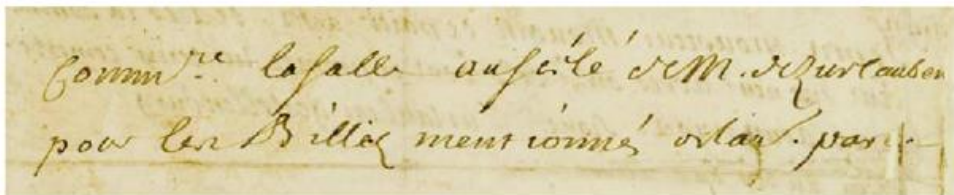 Comm.re lasalle au scélé de M. de Zurlauben
pour les Billez mentionnés delau. par